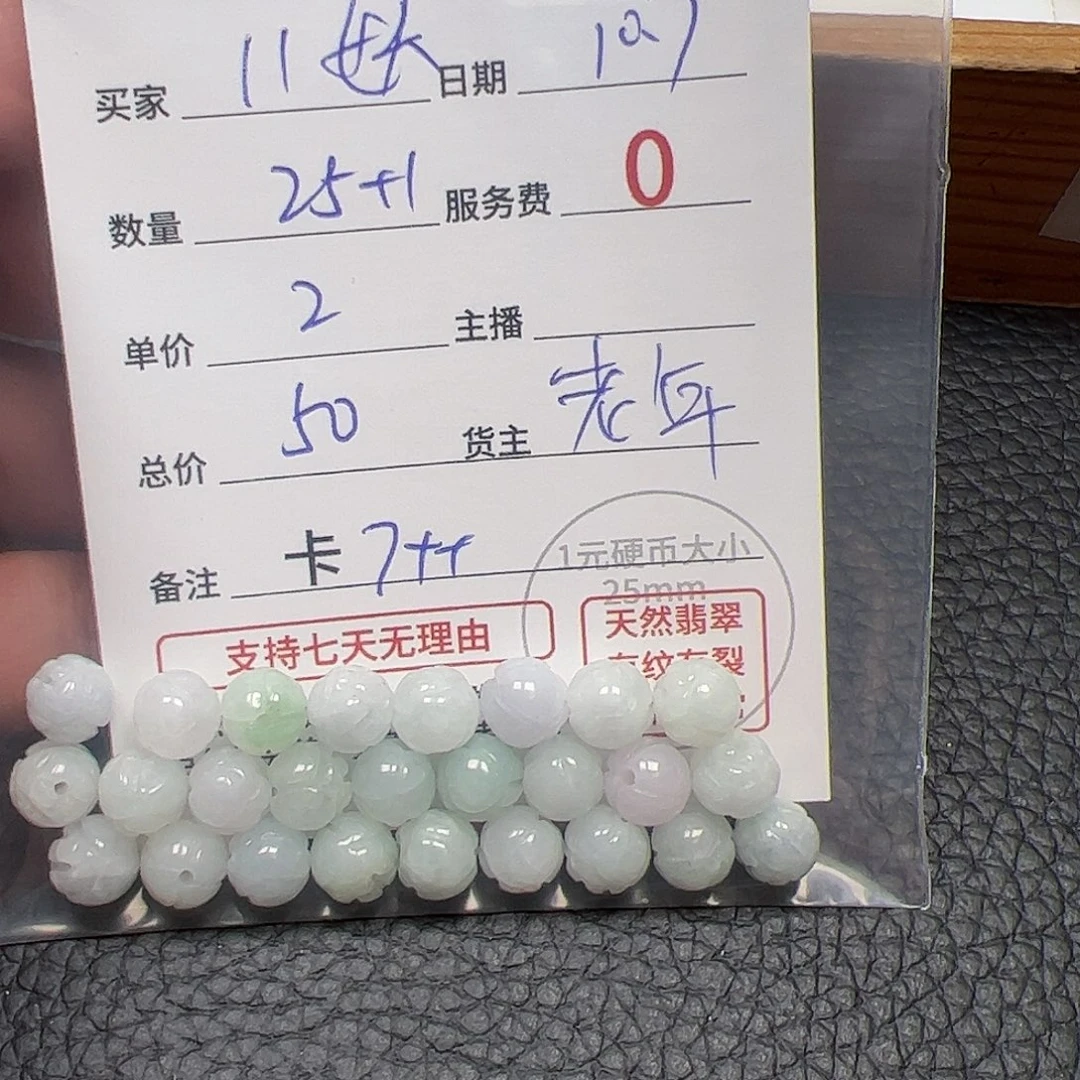 买家 11 日期 10.7
数量 25+1 服务费 0
单价 2 主播
总价 50 货主 老年
备注 卡 7++
1元硬币大小
25mm
支持七天无理由
天然翡翠
有纹有裂